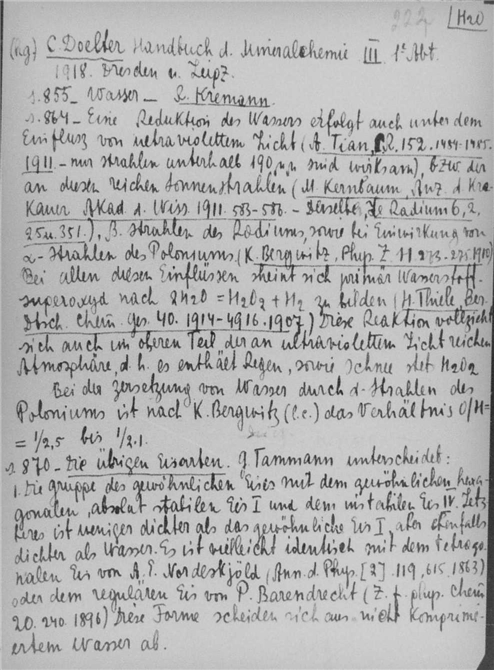 222 H2O
(hg) C. Doelter Handbuch d. Mineralchemie III 1e Abt.
1918. Dresden u. Leipz.
s. 855_ Wasser _ R. Kremann.
s. 864_ Eine Reduktion des Wassers erfolgt auch unter dem
Einfluss von ultraviolettem Licht (A. Tian C.R. 152. 1484-1485.
1911 – nur strahlen unterhalb 190 μμ sind wirksam), bzw der
an diesen reichen Sonnenstrahlen (M. Kernbaum, Anz. d. Kra-
kauer Akad d. Wiss. 1911. 583-586 – Derselbe, Le Radium 6, 2,
25 u. 351.), β. Strahlen des Radiums, sowie bei Einwirkung von
α-Strahlen des Poloniums (K. Bergwitz, Phys. Z. 11. 273-275. 1910)
Bei allen diesen Einflüssen scheint sich primär Wasserstoff-
superoxyd nach 2H2O = H2O2 + H2 zu bilden (H. Thiele, Ber.
Dtsch. chem. ges. 40. 1914-4916. 1907) Diese Reaktion vollzieht
sich auch im oberen Teil der an ultraviolettem Licht reichen
Atmosphäre, d. h. es enthält Regen, sowie schnee stet H2O2
Bei der zersetzung von Wasser durch α-Strahlen des
Poloniums ist nach K. Bergwitz (l. c.) das Verhältnis O/H =
= 1/2,5 bis 1/3.1.
s. 870 – Die übrigen Eisarten. G. Tammann unterscheidet:
1. Die gruppe des gewöhnlichen Eises mit dem gewöhnlichen hexa-
gonalen, absolut stabilen Eis I und dem instabilen Eis IV. Letz-
teres ist weniger dichter als das gewöhnliche Eis I, aber ebenfalls
dichter als Wasser. Es ist vielleicht identisch mit dem tetrago-
nalen Eis von A. E. Nordeskjöld (Ann. d. Phys. [2]. 119, 615. 1863)
oder dem regulären Eis von P. Barendrecht (Z. f. phys. Chem
20. 240. 1896) Diese Forme scheiden sich aus nicht Komprimi-
ertem Wasser ab.